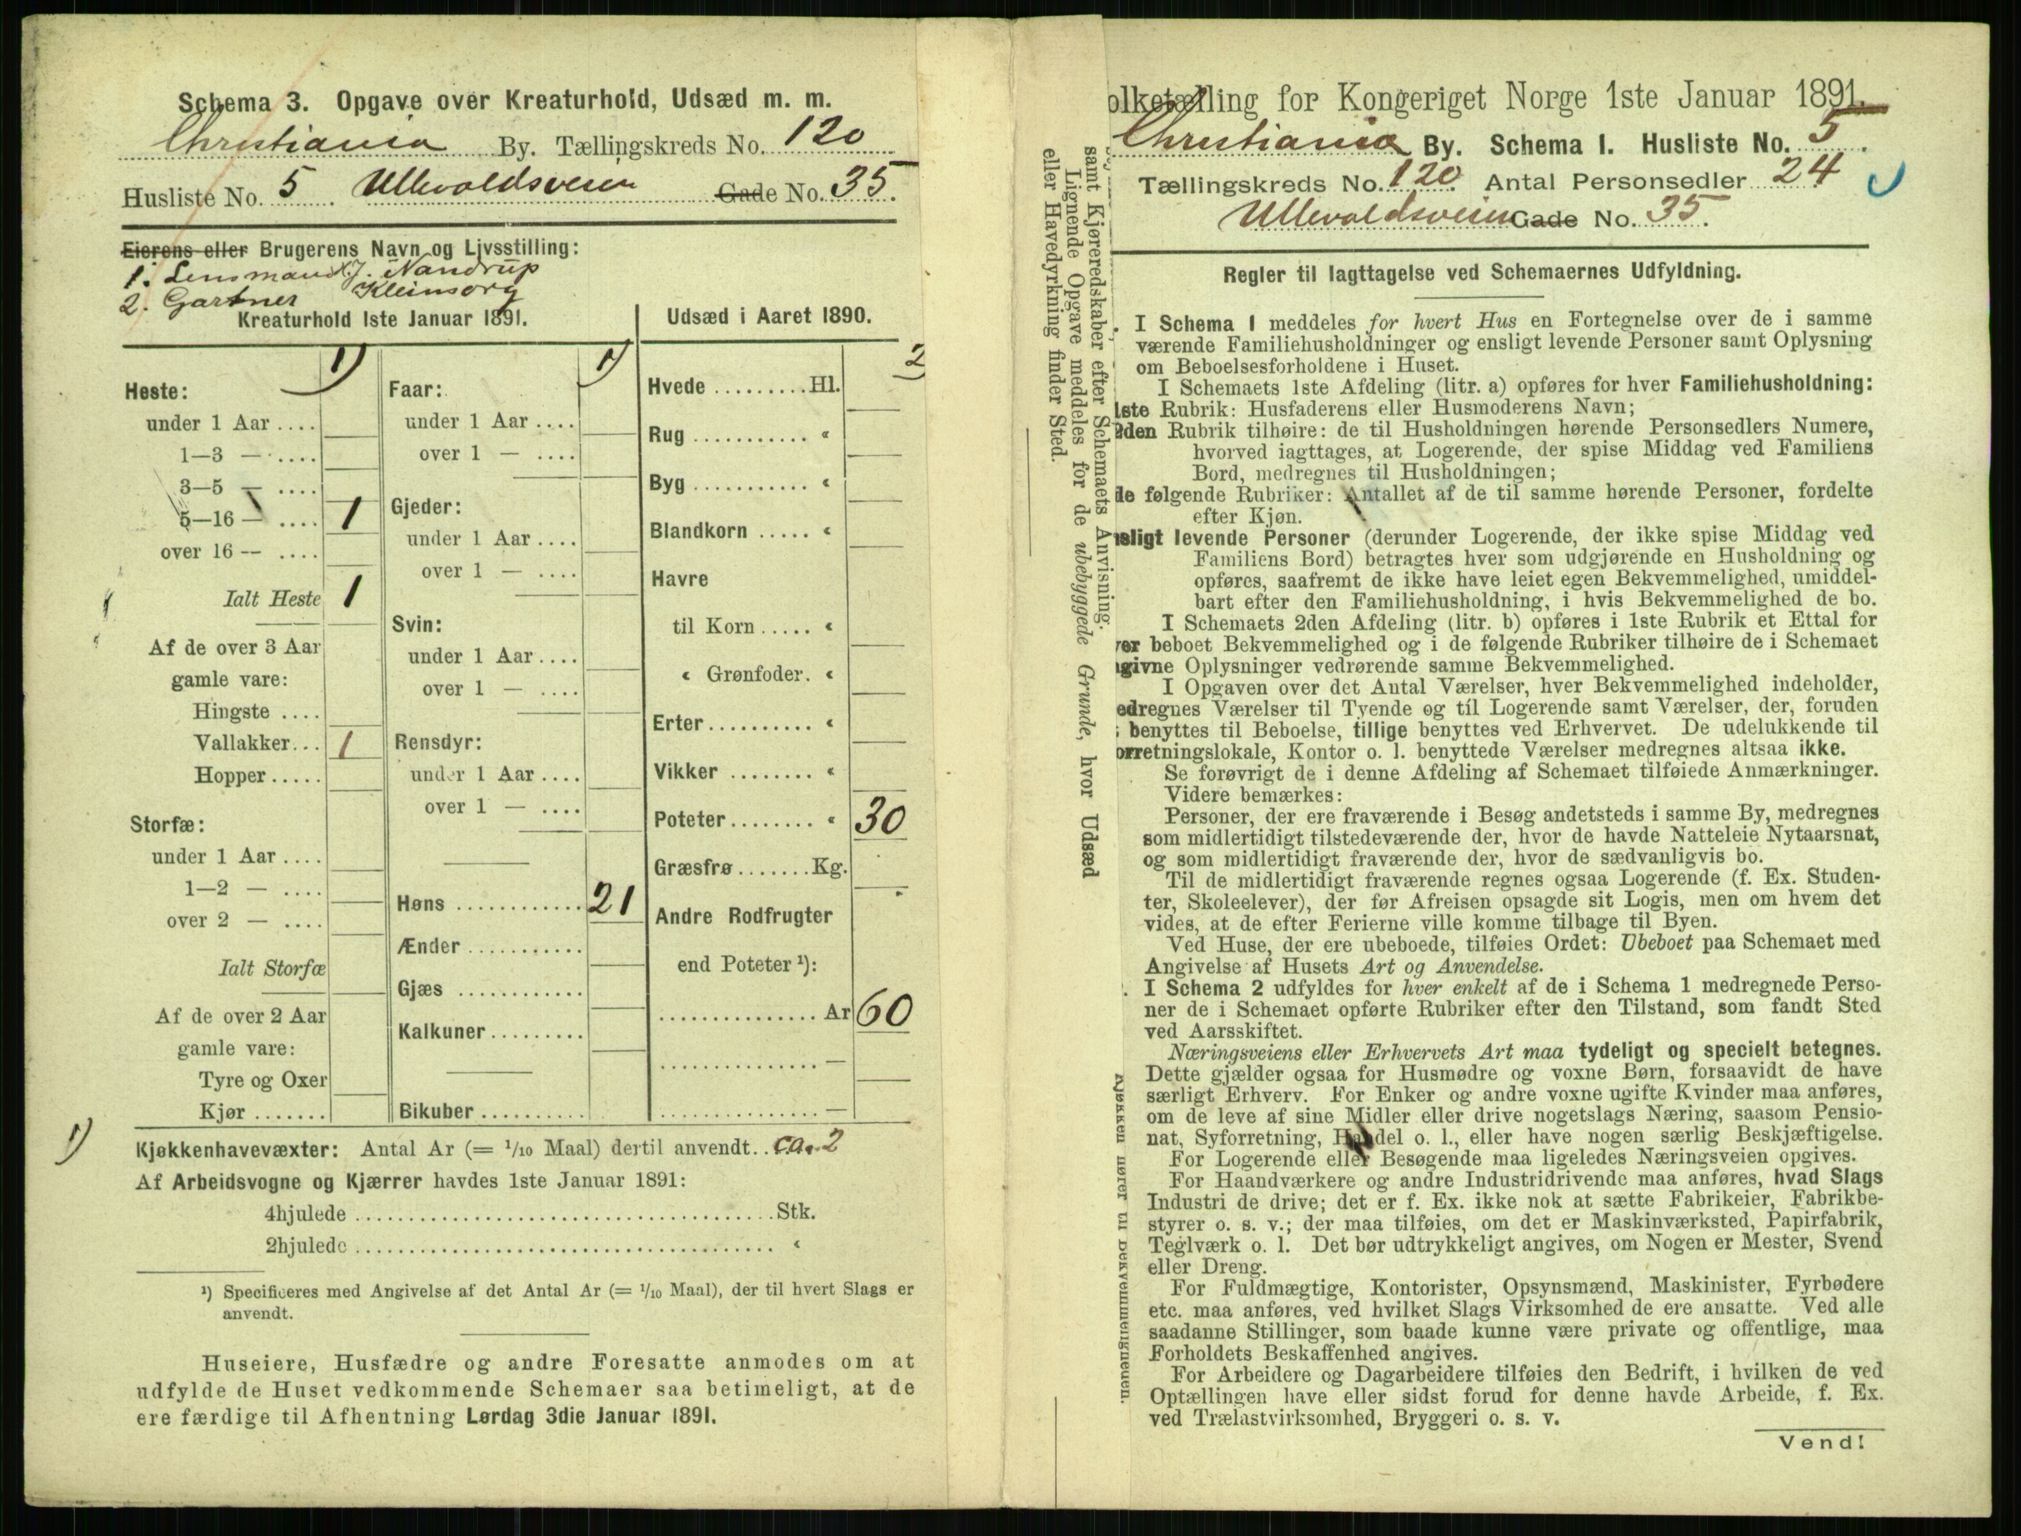 Schema 3. Opgave over Kreaturhold, Udsæd m. m.
Christiania By. Tællingskreds No. 120
Husliste No. 5. Ullevoldsveien Gade No. 35.
Eierens eller Brugerens Navn og Livsstilling:
1. Lensmand J. Nandrup
2. Gartner Kleinsorg
Kreaturhold 1ste Januar 1891.
1) 1)
Heste:
under 1 Aar ....
1—3 — ....
3—5 — ....
5—16 — .... 1
over 16 — ....
Ialt Heste 1
Af de over 3 Aar
gamle vare:
Hingste ....
Vallakker... 1
Hopper.....
Storfæ:
under 1 Aar ....
1—2 — ....
over 2 — ....
Ialt Storfæ
Af de over 2 Aar
gamle vare:
Tyre og Oxer
Kjør .......
Faar:
under 1 Aar ....
over 1 — ....
Gjeder:
under 1 Aar ....
over 1 — ....
Svin:
under 1 Aar ....
over 1 — ....
Rensdyr:
under 1 Aar ....
over 1 — ....
Høns ............ 21
Ænder ...........
Gjæs ............
Kalkuner.........
Bikuber..........
Udsæd i Aaret 1890.
2
Hvede ......... Hl.
Rug ........... «
Byg ........... «
Blandkorn ..... «
Havre
til Korn ..... «
« Grønfoder. «
Erter .......... «
Vikker ........ «
Poteter........ « 30
Græsfrø ....... Kg.
Andre Rodfrugter
end Poteter ¹):
............... Ar 60
............... —
............... —
1) Kjøkkenhavevæxter: Antal Ar (= 1/10 Maal) dertil anvendt.. ca. 2
Af Arbeidsvogne og Kjærrer havdes 1ste Januar 1891:
4hjulede ........................................ Stk.
2hjulede ........................................ «
¹) Specificeres med Angivelse af det Antal Ar (= 1/10 Maal), der til hvert Slags er
anvendt.
Huseiere, Husfædre og andre Foresatte anmodes om at
udfylde de Huset vedkommende Schemaer saa betimeligt, at de
ere færdige til Afhentning Lørdag 3die Januar 1891.
samt Kjøreredskaber efter Schemaets Anvisning.
Lignende Opgave meddeles for de ubebyggede Grunde, hvor Udsæd
eller Havedyrkning finder Sted.
olketælling for Kongeriget Norge 1ste Januar 1891.
Christiania By. Schema 1. Husliste No. 5.
Tællingskreds No. 120. Antal Personsedler 24
Ullevoldsveien Gade No. 35.
Regler til Iagttagelse ved Schemaernes Udfyldning.
. I Schema 1 meddeles for hvert Hus en Fortegnelse over de i samme
værende Familiehusholdninger og ensligt levende Personer samt Oplysning
om Beboelsesforholdene i Huset.
I Schemaets 1ste Afdeling (litr. a) opføres for hver Familiehusholdning:
1ste Rubrik: Husfaderens eller Husmoderens Navn;
2den Rubrik tilhøire: de til Husholdningen hørende Personsedlers Numere,
hvorved iagttages, at Logerende, der spise Middag ved Familiens
Bord, medregnes til Husholdningen;
de følgende Rubriker: Antallet af de til samme hørende Personer, fordelte
efter Kjøn.
nsligt levende Personer (derunder Logerende, der ikke spise Middag ved
Familiens Bord) betragtes hver som udgjørende en Husholdning og
opføres, saafremt de ikke have leiet egen Bekvemmelighed, umiddel-
bart efter den Familiehusholdning, i hvis Bekvemmelighed de bo.
I Schemaets 2den Afdeling (litr. b) opføres i 1ste Rubrik et Ettal for
ver beboet Bekvemmelighed og i de følgende Rubriker tilhøire de i Schemaet
ngivne Oplysninger vedrørende samme Bekvemmelighed.
I Opgaven over det Antal Værelser, hver Bekvemmelighed indeholder,
edregnes Værelser til Tyende og til Logerende samt Værelser, der, foruden
benyttes til Beboelse, tillige benyttes ved Erhvervet. De udelukkende til
orretningslokale, Kontor o. l. benyttede Værelser medregnes altsaa ikke.
Se forøvrigt de i denne Afdeling af Schemaet tilføiede Anmærkninger.
Videre bemærkes:
Personer, der ere fraværende i Besøg andetsteds i samme By, medregnes
som midlertidigt tilstedeværende der, hvor de havde Natteleie Nytaarsnat,
og som midlertidigt fraværende der, hvor de sædvanligvis bo.
Til de midlertidigt fraværende regnes ogsaa Logerende (f. Ex. Studen-
ter, Skoleelever), der før Afreisen opsagde sit Logis, men om hvem det
vides, at de efter Ferierne ville komme tilbage til Byen.
Ved Huse, der ere ubeboede, tilføies Ordet: Ubeboet paa Schemaet med
Angivelse af Husets Art og Anvendelse.
. I Schema 2 udfyldes for hver enkelt af de i Schema 1 medregnede Perso-
ner de i Schemaet opførte Rubriker efter den Tilstand, som fandt Sted
ved Aarsskiftet.
Næringsveiens eller Erhvervets Art maa tydeligt og specielt betegnes.
Dette gjælder ogsaa for Husmødre og voxne Børn, forsaavidt de have
særligt Erhverv. For Enker og andre voxne ugifte Kvinder maa anføres,
om de leve af sine Midler eller drive nogetslags Næring, saasom Pensio-
nat, Syforretning, Handel o. l., eller have nogen særlig Beskjæftigelse.
For Logerende eller Besøgende maa ligeledes Næringsveien opgives.
For Haandværkere og andre Industridrivende maa anføres, hvad Slags
Industri de drive; det er f. Ex. ikke nok at sætte Fabrikeier, Fabrikbe-
styrer o. s. v.; der maa tilføies, om det er Maskinværksted, Papirfabrik,
Teglværk o. l. Det bør udtrykkeligt angives, om Nogen er Mester, Svend
eller Dreng.
For Fuldmægtige, Kontorister, Opsynsmænd, Maskinister, Fyrbødere
etc. maa anføres, ved hvilket Slags Virksomhed de ere ansatte. Ved alle
saadanne Stillinger, som baade kunne være private og offentlige, maa
Forholdets Beskaffenhed angives.
For Arbeidere og Dagarbeidere tilføies den Bedrift, i hvilken de ved
Optællingen have eller sidst forud for denne havde Arbeide, f. Ex.
ved Trælastvirksomhed, Bryggeri o. s. v.
Vend!